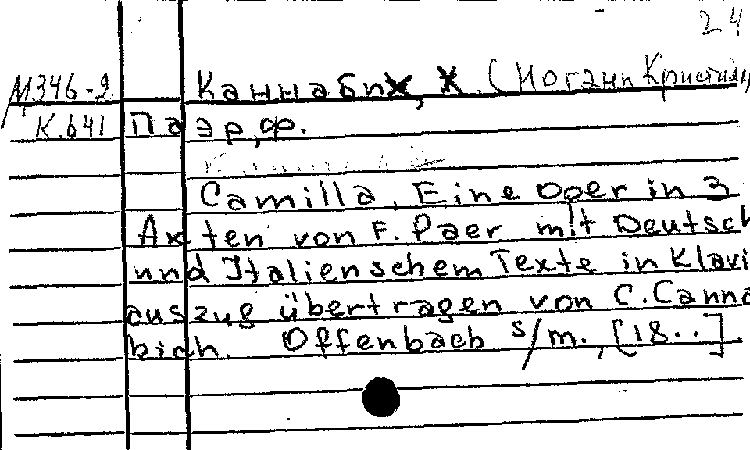 24
М346-2 Каннабих, Х. (Иоганн Кристиан
К.641 Паэр, Ф.
Camilla. Eine Oper in 3
Akten von F. Paer mit Deutsch
und Italienschem Texte in Klavi
auszug übertragen von C. Canna
bich. Offenbach s/m., [18..]